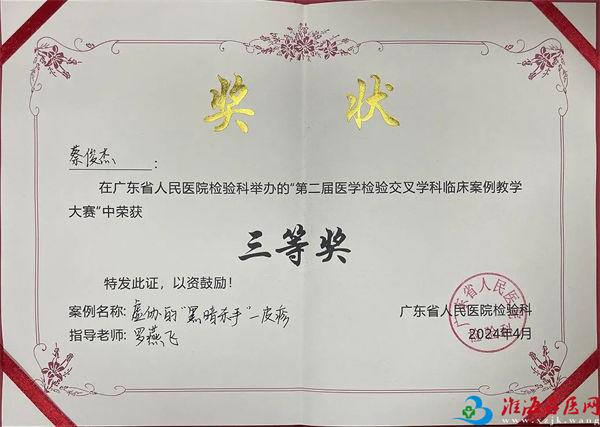 奖 状
蔡俊杰:
在广东省人民医院检验科举办的“第二届医学检验交叉学科临床案例教学
大赛”中荣获
三等奖
特发此证，以资鼓励！
案例名称: 虚伪的“黑暗杀手”—皮疹
指导老师: 罗燕飞
广东省人民医院检验科
2024年4月
淮海名医网
www.xzjk.wang